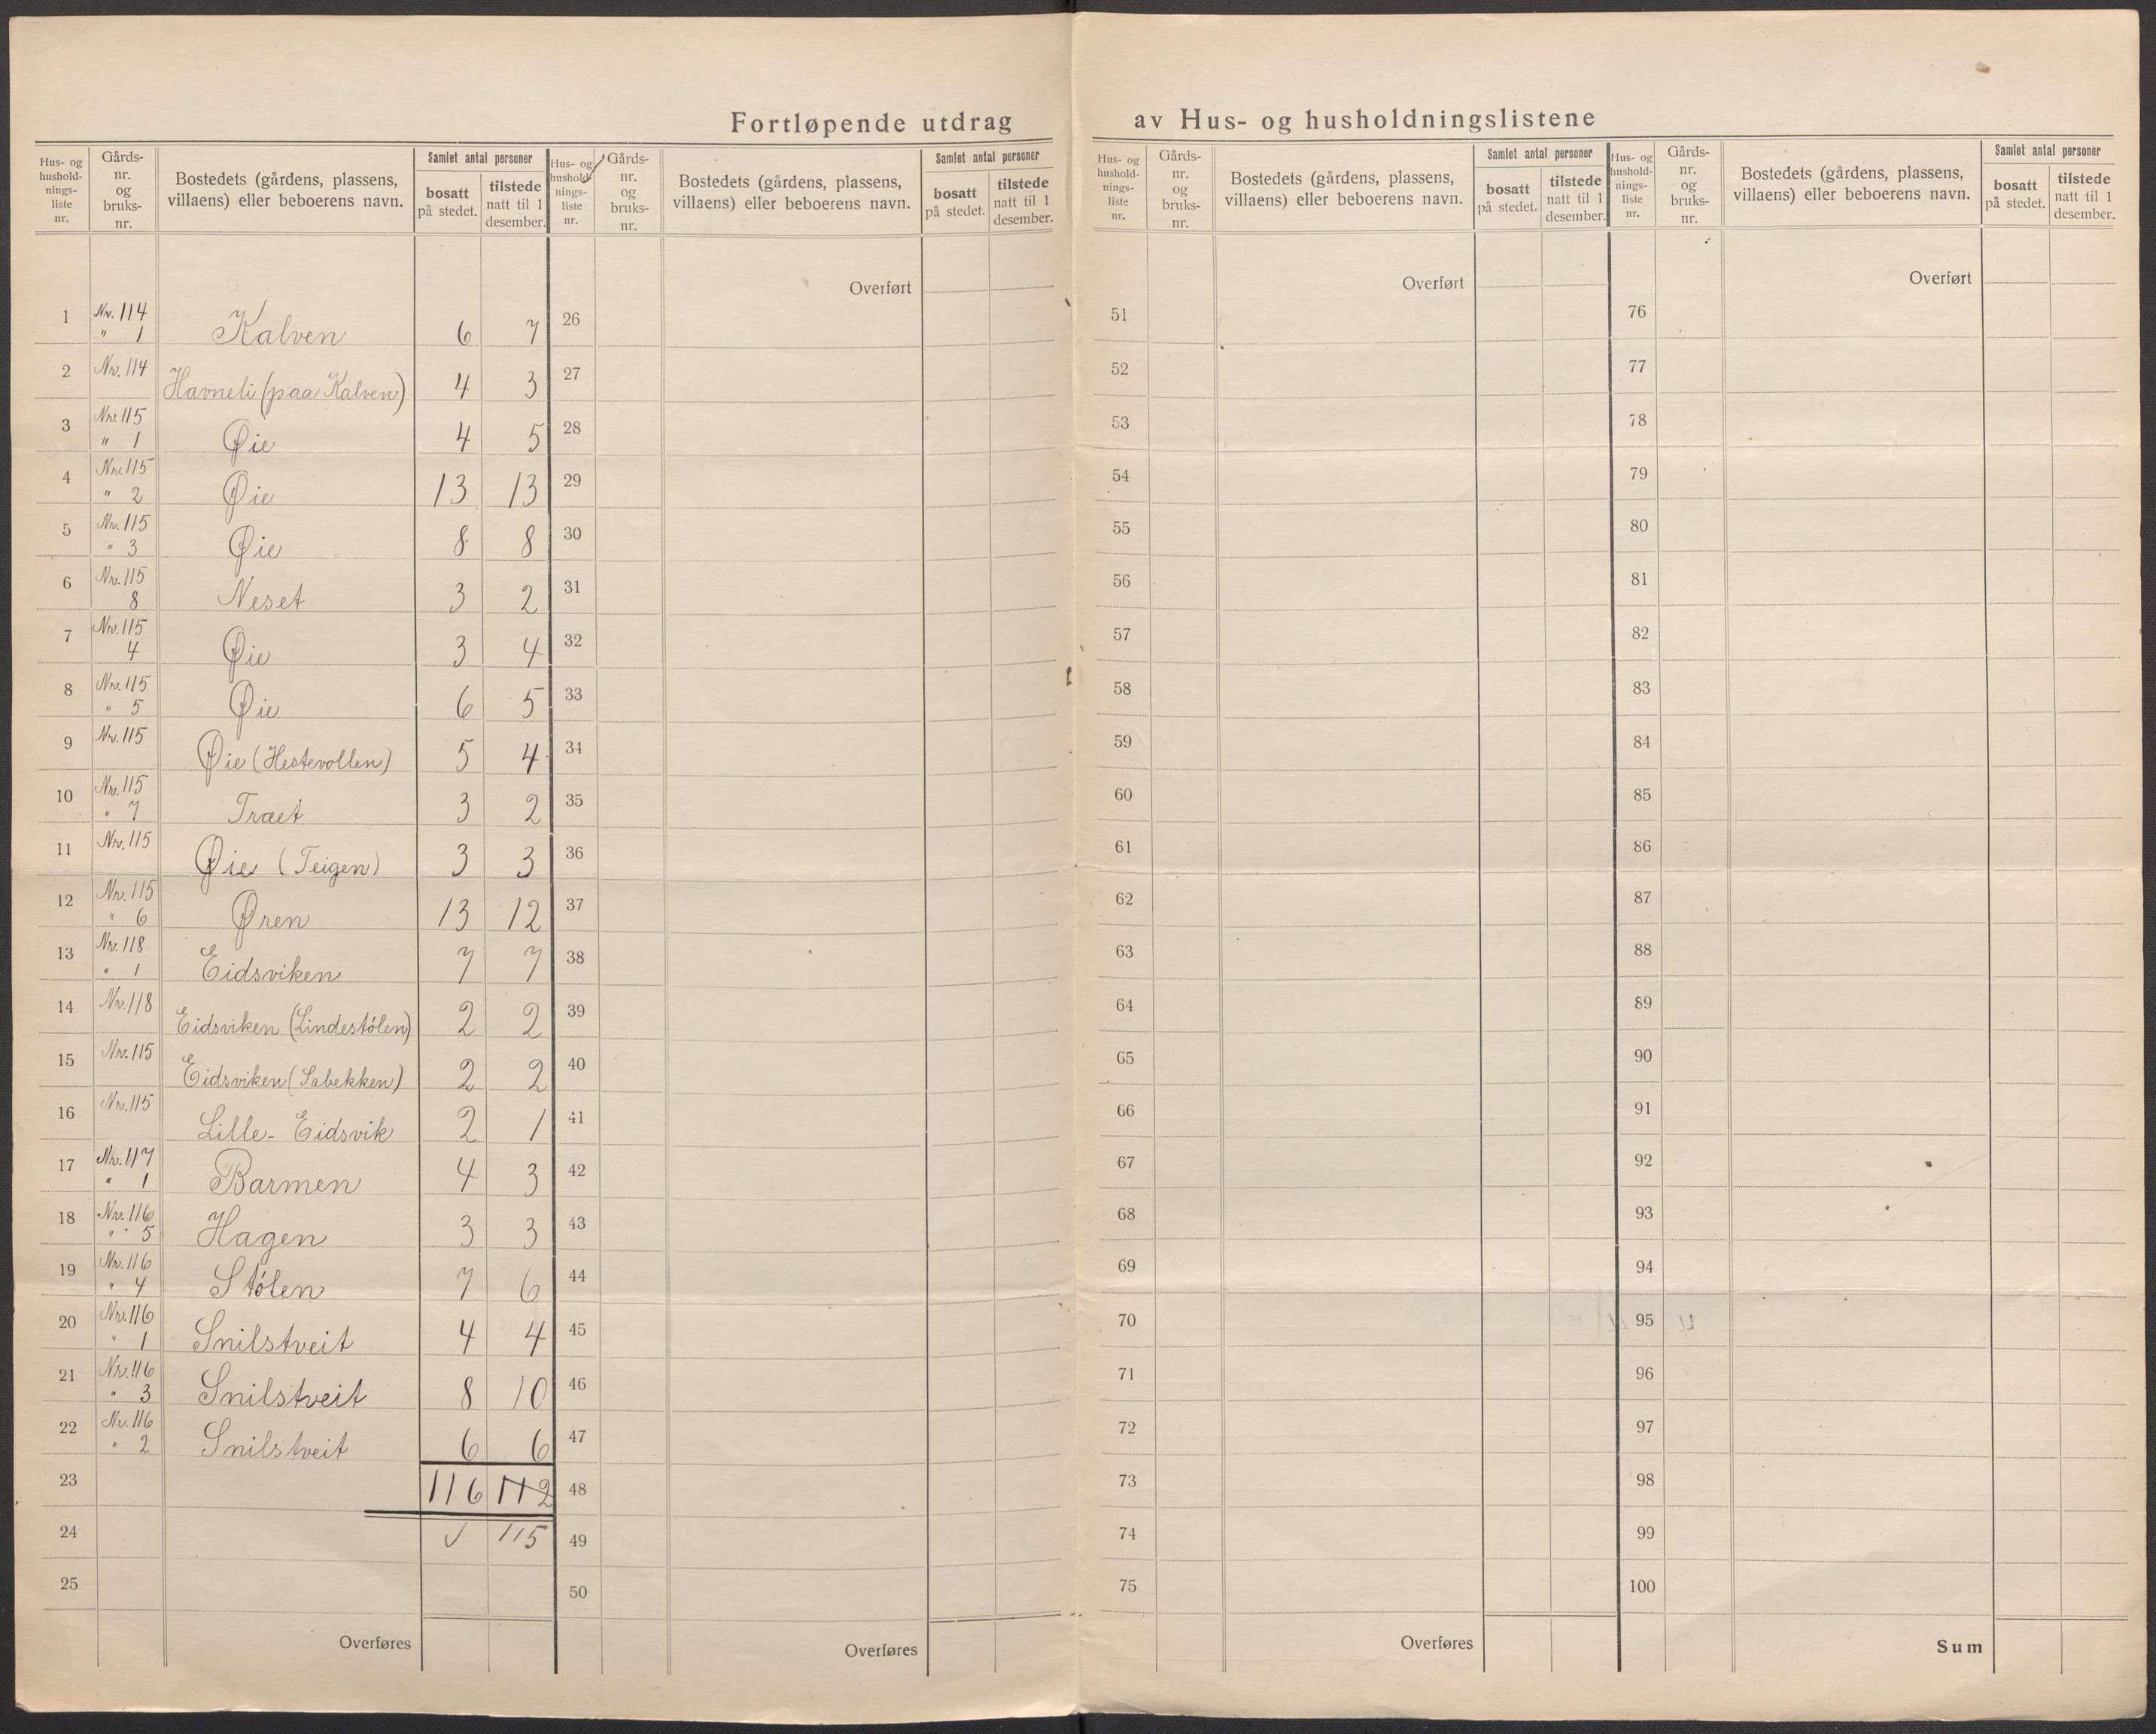 Fortløpende utdrag av Hus- og husholdningslistene
Hus- og hushold- nings- liste nr. Gårds- nr. og bruks- nr. Bostedets (gårdens, plassens, villaens) eller beboerens navn. Samlet antal personer bosatt på stedet. tilstede natt til 1 desember.
Hus- og hushold- nings- liste nr. Gårds- nr. og bruks- nr. Bostedets (gårdens, plassens, villaens) eller beboerens navn. Samlet antal personer bosatt på stedet. tilstede natt til 1 desember.
Hus- og hushold- nings- liste nr. Gårds- nr. og bruks- nr. Bostedets (gårdens, plassens, villaens) eller beboerens navn. Samlet antal personer bosatt på stedet. tilstede natt til 1 desember.
Hus- og hushold- nings- liste nr. Gårds- nr. og bruks- nr. Bostedets (gårdens, plassens, villaens) eller beboerens navn. Samlet antal personer bosatt på stedet. tilstede natt til 1 desember.
1 Nr. 114 " 1 Kalven 6 7
2 Nr. 114 Havneli (paa Kalven) 4 3
3 Nr. 115 " 1 Øie 4 5
4 Nr. 115 " 2 Øie 13 13
5 Nr. 115 " 3 Øie 8 8
6 Nr. 115 8 Neset 3 2
7 Nr. 115 4 Øie 3 4
8 Nr. 115 " 5 Øie 6 5
9 Nr. 115 Øie (Hestevollen) 5 4
10 Nr. 115 " 7 Træet 3 2
11 Nr. 115 Øie (Teigen) 3 3
12 Nr. 115 " 6 Øren 13 12
13 Nr. 118 " 1 Eidsviken 7 7
14 Nr. 118 Eidsviken (Lindestölen) 2 2
15 Nr. 115 Eidsviken (Sabekken) 2 2
16 Nr. 115 Lille- Eidsvik 2 1
17 Nr. 117 " 1 Barmen 4 3
18 Nr. 116 " 5 Hagen 3 3
19 Nr. 116 " 4 Stölen 7 6
20 Nr. 116 " 1 Snilstveit 4 4
21 Nr. 116 " 3 Snilstveit 8 10
22 Nr. 116 " 2 Snilstveit 6 6
23 116 112
24 √ 115
25
Overføres
Overført
26
27
28
29
30
31
32
33
34
35
36
37
38
39
40
41
42
43
44
45
46
47
48
49
50
Overføres
Overført
51
52
53
54
55
56
57
58
59
60
61
62
63
64
65
66
67
68
69
70
71
72
73
74
75
Overføres
Overført
76
77
78
79
80
81
82
83
84
85
86
87
88
89
90
91
92
93
94
95
96
97
98
99
100
Sum